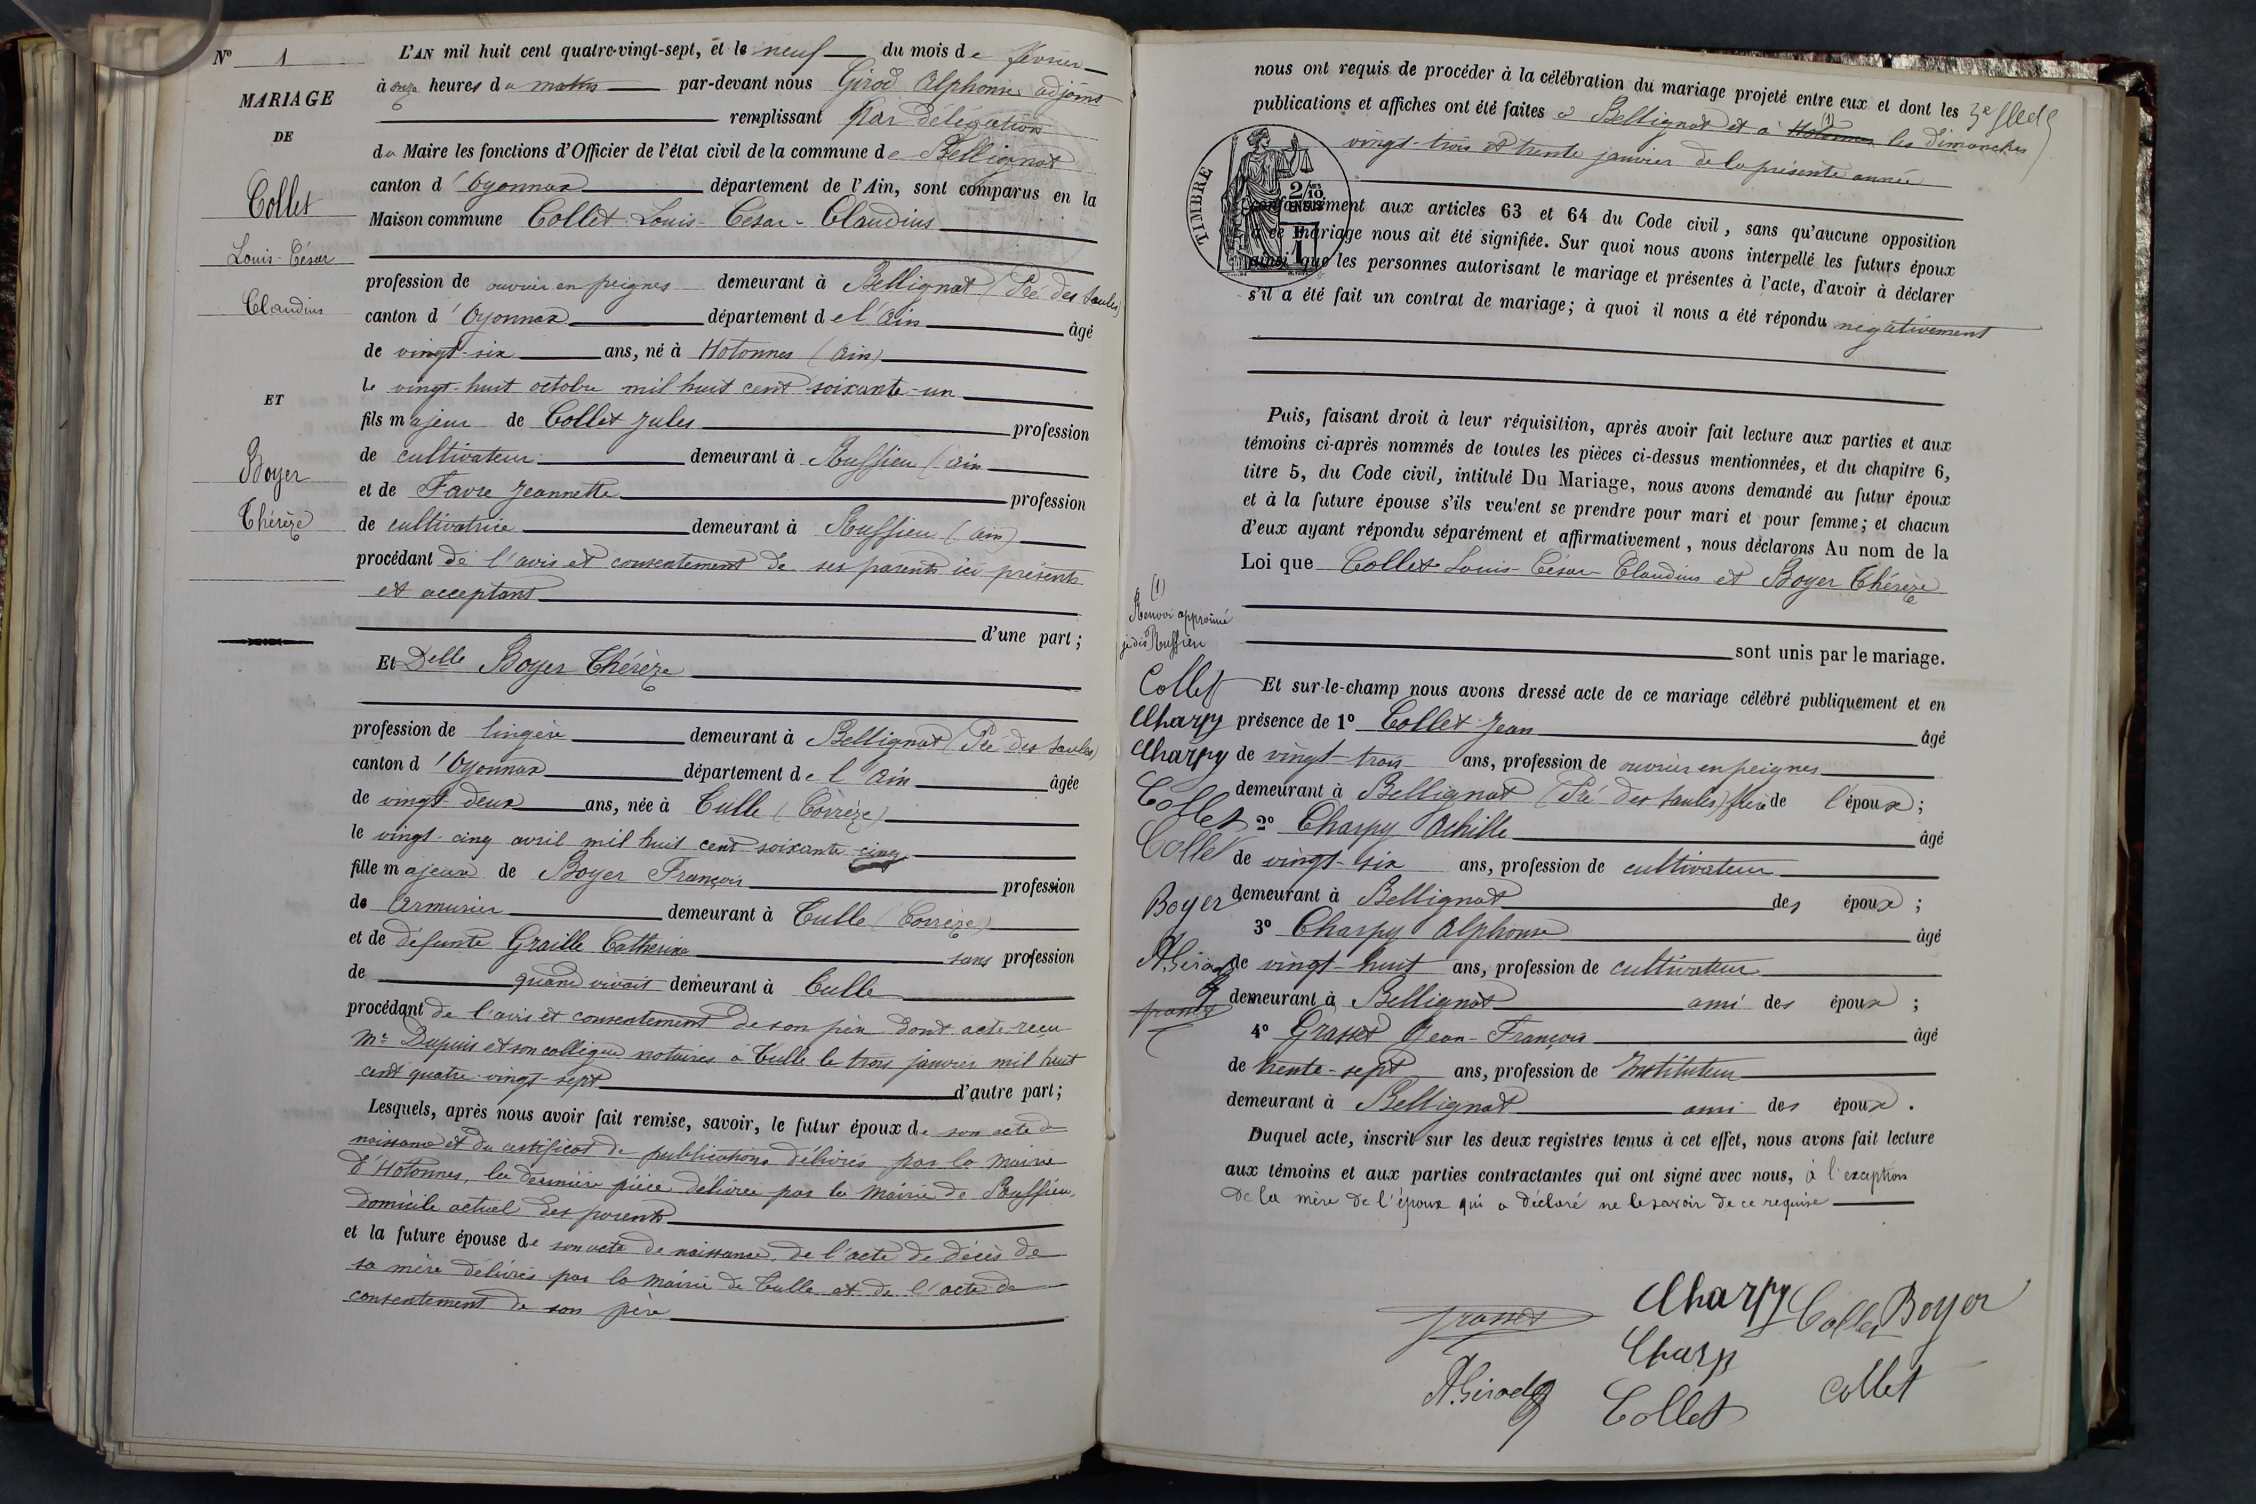 N° 1
MARIAGE
DE
Collet
Louis-César
Claudius
ET
Boyer
Thérèze
L'AN mil huit cent quatre-vingt-sept, et le neuf du mois de février
à onze heures du matin par-devant nous Girod Alphonse adjoint
remplissant par délégation
du Maire les fonctions d'Officier de l'état civil de la commune de Bellignat
canton d'Oyonnax département de l'Ain, sont comparus en la
Maison commune Collet Louis-César-Claudius
profession de ouvrier en peignes demeurant à Bellignat (Pré des Saules)
canton d'Oyonnax département de l'Ain âgé
de vingt-six ans, né à Hotonnes (Ain)
le vingt-huit octobre mil huit cent soixante-un
fils majeur de Collet Jules profession
de cultivateur demeurant à Ruffieu (Ain
et de Favre Jeannette profession
de cultivatrice demeurant à Ruffieu (Ain)
procédant de l'avis et consentement de ses parents ici présents
et acceptant
d'une part;
Et Delle Boyer Thérèze
profession de lingère demeurant à Bellignat (Pré des Saules)
canton d'Oyonnax département de l'Ain âgée
de vingt-deux ans, née à Tulle (Corrèze)
le vingt-cinq avril mil huit cent soixante-cinq
fille majeure de Boyer François profession
de Armurier demeurant à Tulle (Corrèze)
et de défunte Graille Catherine sans profession
de quand vivait demeurant à Tulle
procédant de l'avis et consentement de son père dont acte reçu
Me Dupuis et son collègue notaires à Tulle le trois janvier mil huit
cent quatre-vingt-sept d'autre part;
Lesquels, après nous avoir fait remise, savoir, le futur époux de son acte de
naissance et du certificat de publications délivrés par la mairie
d'Hotonnes, la dernière pièce délivrée par la mairie de Ruffieu,
domicile actuel des parents
et la future épouse de son acte de naissance, de l'acte de décès de
sa mère délivrés par la mairie de Tulle et de l'acte de
consentement de son père
nous ont requis de procéder à la célébration du mariage projeté entre eux et dont les
publications et affiches ont été faites à Bellignat et à (1) Hotonnes les dimanches
vingt-trois et trente janvier de la présente année
TIMBRE
2/10
EN SUS
conformément aux articles 63 et 64 du Code civil, sans qu'aucune opposition
à ce mariage nous ait été signifiée. Sur quoi nous avons interpellé les futurs époux
ainsi que les personnes autorisant le mariage et présentes à l'acte, d'avoir à déclarer
s'il a été fait un contrat de mariage; à quoi il nous a été répondu négativement
Puis, faisant droit à leur réquisition, après avoir fait lecture aux parties et aux
témoins ci-après nommés de toutes les pièces ci-dessus mentionnées, et du chapitre 6,
titre 5, du Code civil, intitulé Du Mariage, nous avons demandé au futur époux
et à la future épouse s'ils veulent se prendre pour mari et pour femme; et chacun
d'eux ayant répondu séparément et affirmativement, nous déclarons Au nom de la
Loi que Collet Louis-César-Claudius et Boyer Thérèze
sont unis par le mariage.
(1)
Renvoi approuvé
je dis Ruffieu
Collet
Charpy
Charpy
Collet
Collet
Boyer
A. Girod
Grasset
Et sur-le-champ nous avons dressé acte de ce mariage célébré publiquement et en
présence de 1° Collet Jean âgé
de vingt-trois ans, profession de ouvrier en peignes
demeurant à Bellignat (Pré des Saules) frère de l'époux;
2° Charpy Achille âgé
de vingt-six ans, profession de cultivateur
demeurant à Bellignat des époux;
3° Charpy Alphonse âgé
de vingt-huit ans, profession de cultivateur
demeurant à Bellignat ami des époux;
4° Grasset Jean-François âgé
de trente-sept ans, profession de Instituteur
demeurant à Bellignat ami des époux.
Duquel acte, inscrit sur les deux registres tenus à cet effet, nous avons fait lecture
aux témoins et aux parties contractantes qui ont signé avec nous, à l'exception
de la mère de l'époux qui a déclaré ne le savoir de ce requise
Grasset Charpy Collet Boyer
Charp
A. Girod Collet Collet